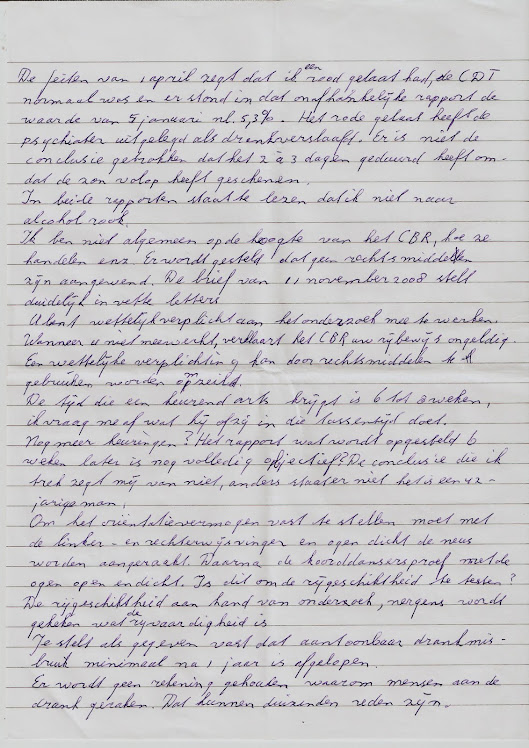 De feiten van 1 april zegt dat ik een rood gelaat had, de CDT
normaal was en er stond in dat onafhankelijke rapport de
waarde van 5 januari nl. 5,3%. Het rode gelaat heeft de
psychiater uitgelegd als drankverslaaft. Er is niet de
conclusie getrokken dat het 2 à 3 dagen geduurd heeft om-
dat de zon volop heeft geschenen.
In beide rapporten staat te lezen dat ik niet naar
alcohol rook.
Ik ben niet algemeen op de hoogte van het CBR, hoe ze
handelen enz. Er wordt gesteld dat geen rechtsmiddelen
zijn aangewend. De brief van 11 november 2008 stelt
duidelijk in vette letters
U bent wettelijk verplicht aan het onderzoek mee te werken.
Wanneer u niet meewerkt, verklaart het CBR uw rijbewijs ongeldig.
Een wettelijke verplichting kan door rechtsmiddelen te
gebruiken worden
De tijd die een keurend arts krijgt is 6 tot 8 weken,
ik vraag me af wat hij of zij in die tussentijd doet.
Nog meer keuringen? Het rapport wat wordt opgesteld 6
weken later is nog volledig objectief? De conclusie die ik
trek zegt mij van niet, anders staat er niet het is een 42-
jarige man.
Om het oriëntatievermogen vast te stellen moet met
de linker- en rechterwijsvinger en ogen dicht de neus
worden aangeraakt. Daarna de koorddansersproef met de
ogen open en dicht. Is dit om de rijgeschiktheid te testen?
De rijgeschiktheid aan hand van onderzoek, nergens wordt
gekeken wat de rijvaardigheid is
Je stelt als gegeven vast dat aantoonbaar drankmis-
bruik minimaal na 1 jaar is afgelopen.
Er wordt geen rekening gehouden waarom mensen aan de
drank geraken. Dat kunnen duizenden reden zijn.